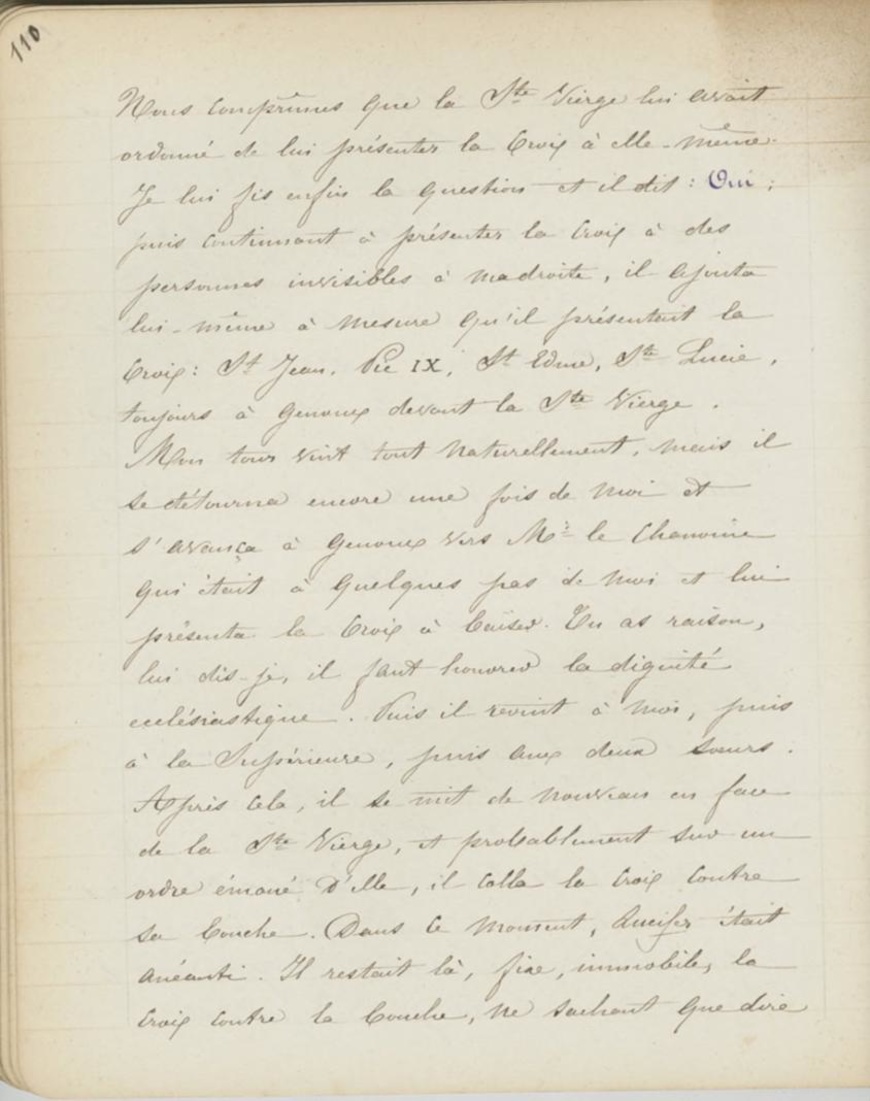 110
Nous comprîmes que la Ste Vierge lui avait
ordonné de lui présenter la Croix à elle-même.
Je lui fis enfin la question et il dit : Oui ;
puis continuant à présenter la Croix à des
personnes invisibles à ma droite, il ajouta
lui-même à mesure qu'il présentait la
Croix : St Jean, Pie IX, St Edme, Ste Lucie,
toujours à genoux devant la Ste Vierge.
Mon tour vint tout naturellement, mais il
se détourna encore une fois de moi et
s'avança à genoux vers Mr le Chanoine
qui était à quelques pas de moi et lui
présenta la Croix à baiser. Tu as raison,
lui dis-je, il faut honorer la dignité
ecclésiastique. Puis il revint à moi, puis
à la Supérieure, puis aux deux sœurs.
Après cela, il se mit de nouveau en face
de la Ste Vierge, et probablement sur un
ordre émané d'Elle, il colla la Croix contre
sa bouche. Dans ce moment, Lucifer était
anéanti. Il restait là, fixe, immobile, la
Croix contre la bouche, ne sachant que dire